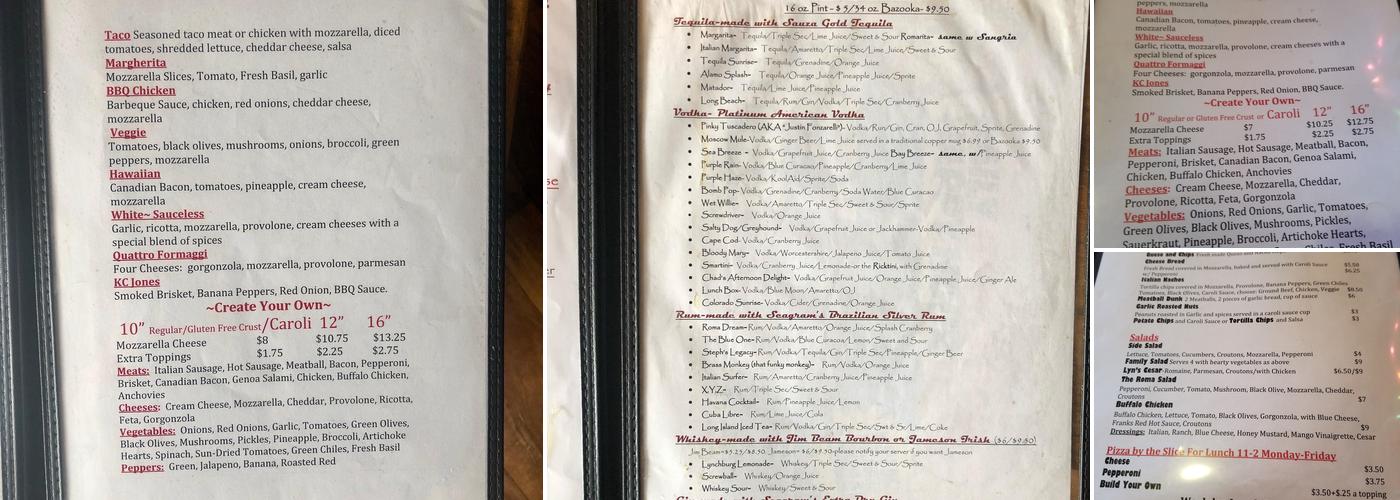 Taco Seasoned taco meat or chicken with mozzarella, diced
tomatoes, shredded lettuce, cheddar cheese, salsa
Margherita
Mozzarella Slices, Tomato, Fresh Basil, garlic
BBQ Chicken
Barbeque Sauce, chicken, red onions, cheddar cheese,
mozzarella
Veggie
Tomatoes, black olives, mushrooms, onions, broccoli, green
peppers, mozzarella
Hawaiian
Canadian Bacon, tomatoes, pineapple, cream cheese,
mozzarella
White~ Sauceless
Garlic, ricotta, mozzarella, provolone, cream cheeses with a
special blend of spices
Quattro Formaggi
Four Cheeses: gorgonzola, mozzarella, provolone, parmesan
KC Jones
Smoked Brisket, Banana Peppers, Red Onion, BBQ Sauce.
~Create Your Own~
10" Regular/Gluten Free Crust/Caroli 12" 16"
Mozzarella Cheese $8 $10.75 $13.25
Extra Toppings $1.75 $2.25 $2.75
Meats: Italian Sausage, Hot Sausage, Meatball, Bacon, Pepperoni,
Brisket, Canadian Bacon, Genoa Salami, Chicken, Buffalo Chicken,
Anchovies
Cheeses: Cream Cheese, Mozzarella, Cheddar, Provolone, Ricotta,
Feta, Gorgonzola
Vegetables: Onions, Red Onions, Garlic, Tomatoes, Green Olives,
Black Olives, Mushrooms, Pickles, Pineapple, Broccoli, Artichoke
Hearts, Spinach, Sun-Dried Tomatoes, Green Chiles, Fresh Basil
Peppers: Green, Jalapeno, Banana, Roasted Red
16 oz Pint- $ 5/34 oz Bazooka- $9.50
Tequila-made with Sauza Gold Tequila
• Margarita- Tequila/Triple Sec/Lime Juice/Sweet & Sour Romarita- same w Sangria
• Italian Margarita- Tequila/Amaretto/Triple Sec/Lime Juice/Sweet & Sour
• Tequila Sunrise- Tequila/Grenadine/Orange Juice
• Alamo Splash- Tequila/Orange Juice/Pineapple Juice/Sprite
• Matador- Tequila/Lime Juice/Pineapple Juice
• Long Beach- Tequila/Rum/Gin/Vodka/Triple Sec/Cranberry Juice
Vodka- Platinum American Vodka
• Pinky Tuscadero (AKA "Justin Ponzarelli")- Vodka/Rum/Gin, Cran, O.J, Grapefruit, Sprite, Grenadine
• Moscow Mule-Vodka/Ginger Beer/Lime Juice served in a traditional copper mug $6.99 or Bazooka $9.50
• Sea Breeze - Vodka/Grapefruit Juice/Cranberry Juice Bay Breeze- same, w/Pineapple Juice
• Purple Rain- Vodka/Blue Curacao/Pineapple/Cranberry/Lime Juice
• Purple Haze- Vodka/KoolAid/Sprite/Soda
• Bomb Pop- Vodka/Grenadine/Cranberry/Soda Water/Blue Curacao
• Wet Willie- Vodka/Amaretto/Triple Sec/Sweet & Sour/Sprite
• Screwdriver- Vodka/Orange Juice
• Salty Dog/Greyhound- Vodka/Grapefruit Juice or Jackhammer-Vodka/Pineapple
• Cape Cod- Vodka/Cranberry Juice
• Bloody Mary- Vodka/Worcestershire/Jalapeno Juice/Tomato Juice
• Smartini- Vodka/Cranberry Juice/Lemonade-or the Ricktini, with Grenadine
• Chad's Afternoon Delight- Vodka/Grapefruit Juice/Orange Juice/Pineapple Juice/Ginger Ale
• Lunch Box- Vodka/Blue Moon/Amaretto/O.J
• Colorado Sunrise- Vodka/Cider/Grenadine/Orange Juice
Rum-made with Seagram's Brazilian Silver Rum
• Roma Dream-Rum/Vodka/Amaretto/Orange Juice/Splash Cranberry
• The Blue One- Rum/Vodka/Blue Curacoa/Lemon/Sweet and Sour
• Steph's Legacy-Rum/Vodka/Tequila/Gin/Triple Sec/Pineapple/Ginger Beer
• Brass Monkey (that funky monkey)- Rum/Vodka/Orange Juice
• Italian Surfer- Rum/Amaretto/Cranberry Juice/Pineapple Juice
• X.Y.Z- Rum/Triple Sec/Sweet & Sour
• Havana Cocktail- Rum/Pineapple Juice/Lemon
• Cuba Libre- Rum/Lime Juice/Cola
• Long Island Iced Tea- Rum/Vodka/Gin/Triple Sec/Swt & Sr/Lime/Coke
Whiskey-made with Jim Beam Bourbon or Jameson Irish ($6/$9.50)
Jim Beam=$5.25/$8.50. Jameson= $6/$9.50-please notify your server if you want Jameson
• Lynchburg Lemonade- Whiskey/Triple Sec/Sweet & Sour/Sprite
• Screwball- Whiskey/Orange Juice
• Whiskey Sour- Whiskey/Sweet & Sour
peppers, mozzarella
Hawaiian
Canadian Bacon, tomatoes, pineapple, cream cheese,
mozzarella
White~ Sauceless
Garlic, ricotta, mozzarella, provolone, cream cheeses with a
special blend of spices
Quattro Formaggi
Four Cheeses: gorgonzola, mozzarella, provolone, parmesan
KC Jones
Smoked Brisket, Banana Peppers, Red Onion, BBQ Sauce.
~Create Your Own~
10" Regular or Gluten Free Crust or Caroli 12" 16"
Mozzarella Cheese $7 $10.25 $12.75
Extra Toppings $1.75 $2.25 $2.75
Meats: Italian Sausage, Hot Sausage, Meatball, Bacon,
Pepperoni, Brisket, Canadian Bacon, Genoa Salami,
Chicken, Buffalo Chicken, Anchovies
Cheeses: Cream Cheese, Mozzarella, Cheddar,
Provolone, Ricotta, Feta, Gorgonzola
Vegetables: Onions, Red Onions, Garlic, Tomatoes,
Green Olives, Black Olives, Mushrooms, Pickles,
Sauerkraut, Pineapple, Broccoli, Artichoke Hearts,
Cheese Bread $5.50
Fresh Bread covered in Mozzarella, baked and served with Caroli Sauce $6.25
w/ Pepperoni
Italian Nachos
Tortilla chips covered in Mozzarella, Provolone, Banana Peppers, Green Chiles
Tomatoes, Black Olives, Caroli Sauce, choose: Ground Beef, Chicken, Veggie $8.50
Meatball Dunk 2 Meatballs, 2 pieces of garlic bread, cup of sauce $6
Garlic Roasted Nuts
Peanuts roasted in Garlic and spices served in a caroli sauce cup $3
Potato Chips and Caroli Sauce or Tortilla Chips and Salsa $3
Salads
Side Salad
Lettuce, Tomatoes, Cucumbers, Croutons, Mozzarella, Pepperoni $4
Family Salad Serves 4 with hearty vegetables as above $9
Lyn's Cesar-Romaine, Parmesan, Croutons/with Chicken $6.50/$9
The Roma Salad
Pepperoni, Cucumber, Tomato, Mushroom, Black Olive, Mozzarella, Cheddar,
Croutons $7
Buffalo Chicken
Buffalo Chicken, Lettuce, Tomato, Black Olives, Gorgonzola, with Blue Cheese,
Franks Red Hot Sauce, Croutons $9
Dressings: Italian, Ranch, Blue Cheese, Honey Mustard, Mango Vinaigrette, Cesar
Pizza by the Slice For Lunch 11-2 Monday-Friday
Cheese $3.50
Pepperoni $3.75
Build Your Own $3.50+$.25 a topping